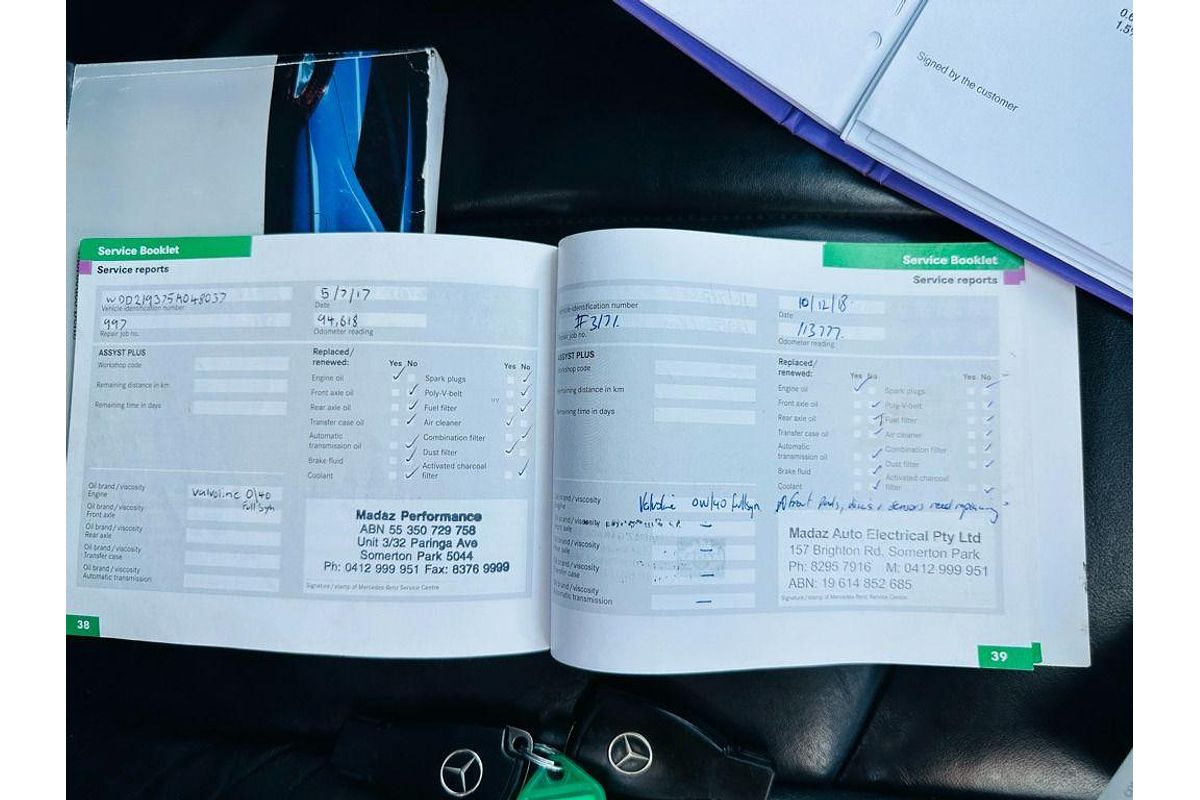 0.6
1.5%
Signed by the customer
Service Booklet
Service reports
WDD2193756A048037
Vehicle identification number
997
Repair job no.
5/7/17
Date
94,618
Odometer reading
ASSYST PLUS
Workshop code
Remaining distance in km
Remaining time in days
Replaced/
renewed:
Yes No
Engine oil
Front axle oil
Rear axle oil
Transfer case oil
Automatic
transmission oil
Brake fluid
Coolant
Yes No
Spark plugs
Poly-V-belt
Fuel filter
Air cleaner
Combination filter
Dust filter
Activated charcoal
filter
Oil brand/viscosity
Engine
Valvoline 0/40
Full Syn
Oil brand/viscosity
Front axle
Oil brand/viscosity
Rear axle
Oil brand/viscosity
Transfer case
Oil brand/viscosity
Automatic transmission
Madaz Performance
ABN 55 350 729 758
Unit 3/32 Paringa Ave
Somerton Park 5044
Ph: 0412 999 951 Fax: 8376 9999
Signature/stamp of Mercedes-Benz Service Centre
38
Service Booklet
Service reports
Vehicle identification number
#3171.
Repair job no.
10/12/18.
Date
113777.
Odometer reading
ASSYST PLUS
Workshop code
Remaining distance in km
Remaining time in days
Replaced/
renewed:
Yes No
Engine oil
Front axle oil
Rear axle oil
Transfer case oil
Automatic
transmission oil
Brake fluid
Coolant
Yes No
Spark plugs
Poly-V-belt
Fuel filter
Air cleaner
Combination filter
Dust filter
Activated charcoal
filter
Oil brand/viscosity
Engine
Valvoline 0W/40 fullsyn
Front pads, discs + sensors need replacing
axle
brand/viscosity
axle
brand/viscosity
Transfer case
brand/viscosity
Automatic transmission
Madaz Auto Electrical Pty Ltd
157 Brighton Rd, Somerton Park
Ph: 8295 7916 M: 0412 999 951
ABN: 19 614 852 685
Signature/stamp of Mercedes-Benz Service Centre
39